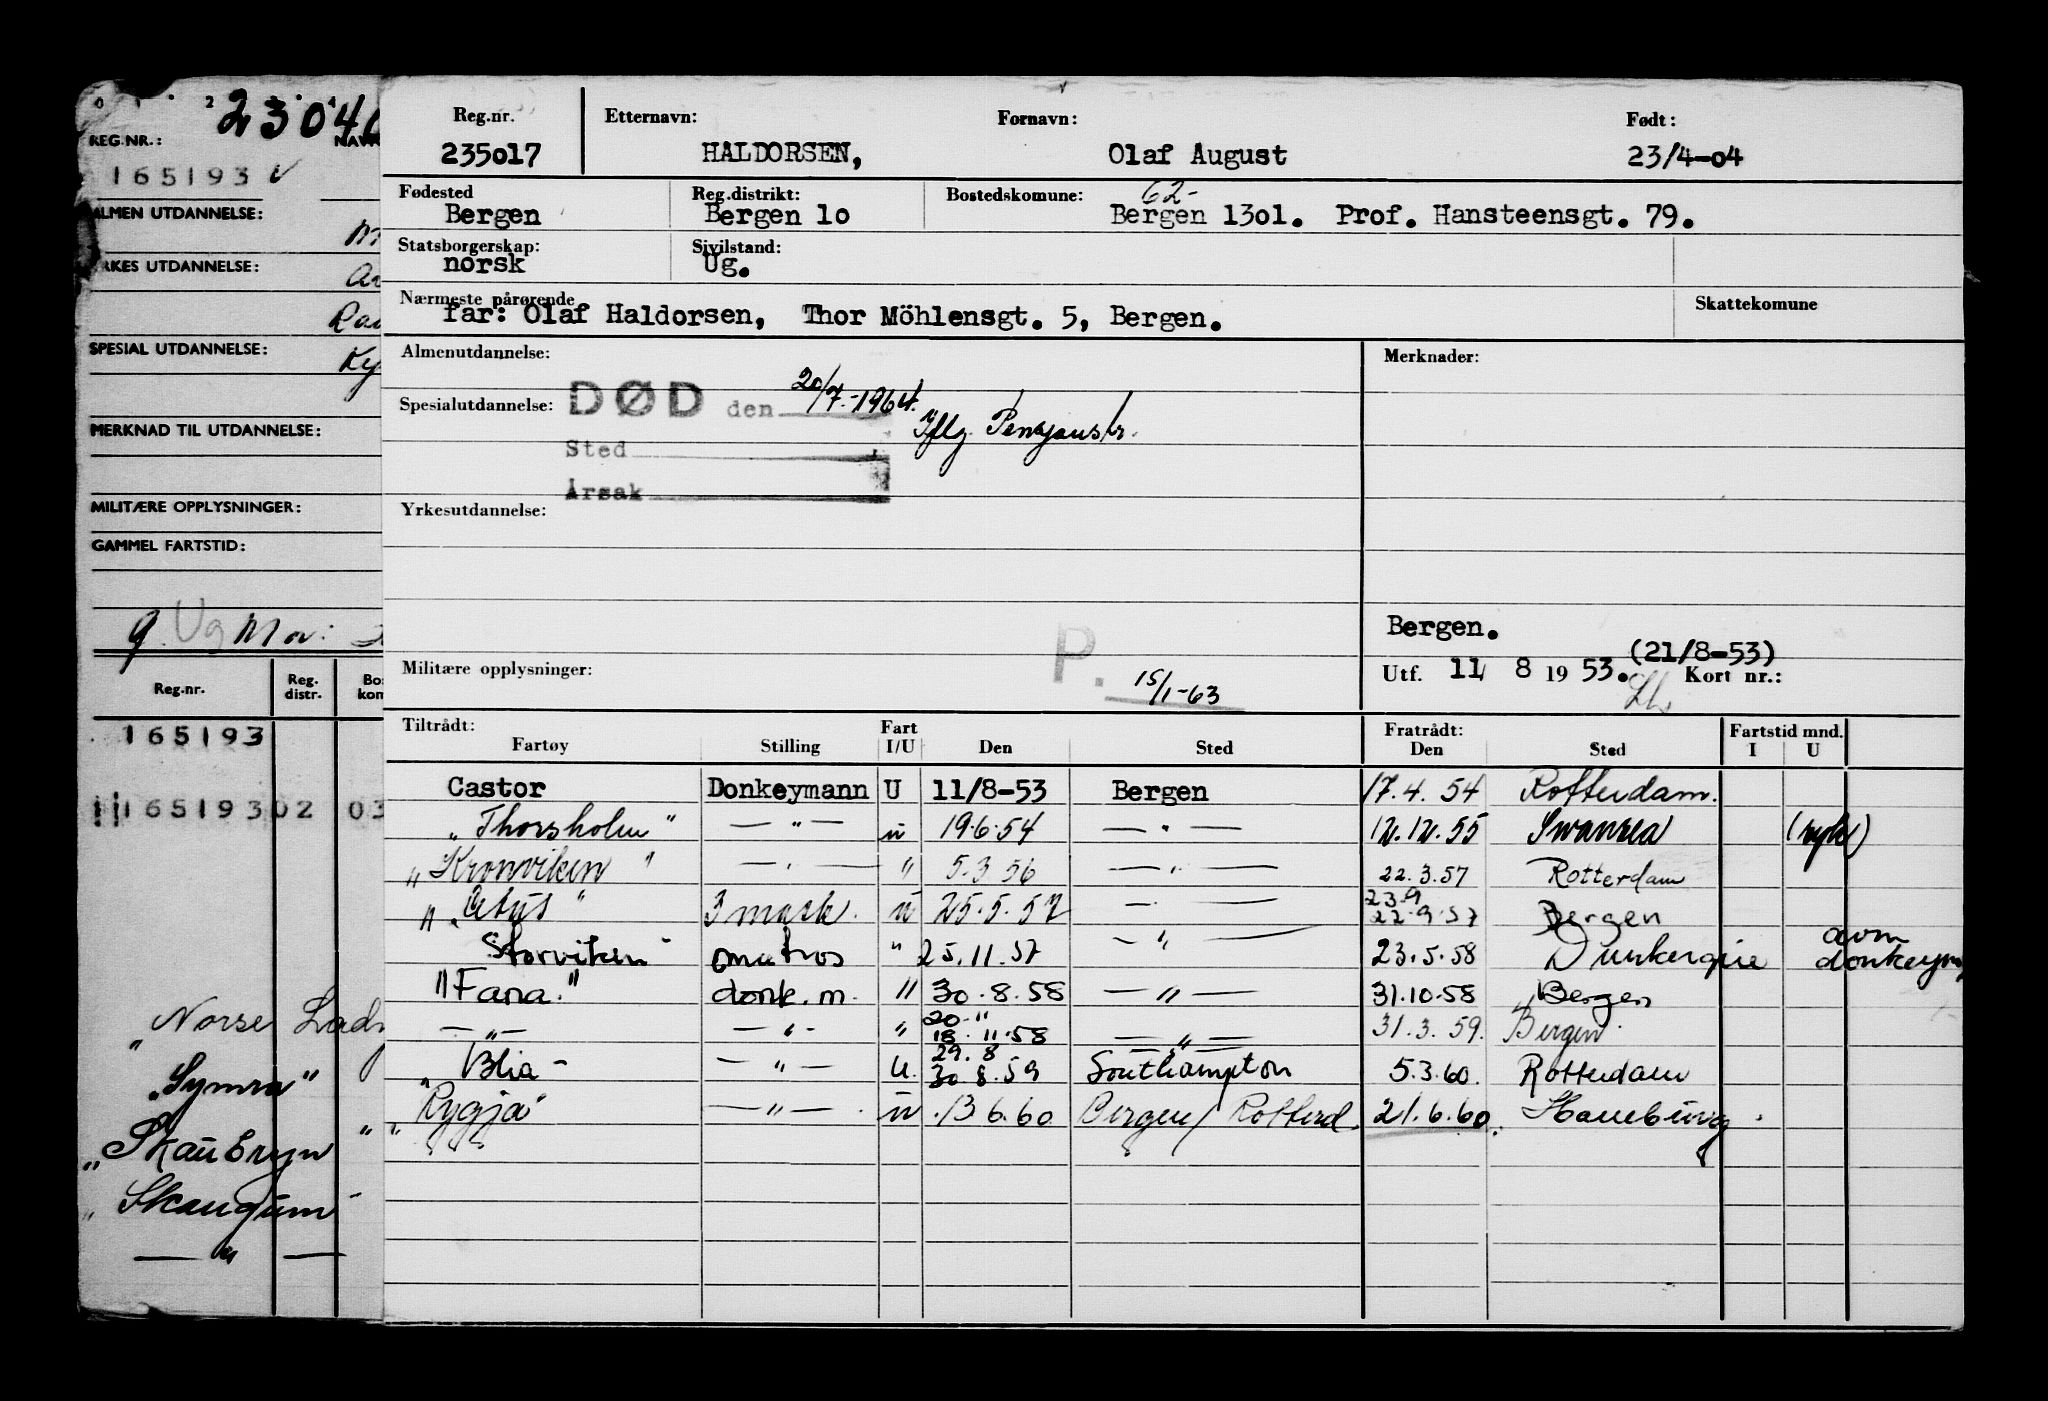 23040
REG.NR.:
165193 V
ALMEN UTDANNELSE:
YRKES UTDANNELSE:
SPESIAL UTDANNELSE:
MERKNAD TIL UTDANNELSE:
MILITÆRE OPPLYSNINGER:
GAMMEL FARTSTID:
g. Ug Mor:
Reg.nr. Reg. distr.
165193
165193 02 03
"Norse
"Symra"
"Skaubryn"
"Skaugum"
— " —
Reg.nr. Etternavn: Fornavn: Født:
235017 HALDORSEN, Olaf August 23/4-04
Fødested Reg.distrikt: Bostedskomune: 62-
Bergen Bergen 10 Bergen 1301. Prof. Hansteensgt. 79.
Statsborgerskap: Sivilstand:
norsk Ug.
Nærmeste pårørende Skattekomune
far: Olaf Haldorsen, Thor Möhlensgt. 5, Bergen.
Almenutdannelse: Merknader:
Spesialutdannelse: DØD den 20/7.-1964. Iflg. Pensjonstr.
Sted
Årsak
Yrkesutdannelse:
Bergen.
Militære opplysninger: P. 15/1-63
Utf. 11/ 8 19 53. (21/8-53) Kort nr.:
Tiltrådt: Fart Fratrådt: Fartstid mnd.
Fartøy Stilling I/U Den Sted Den Sted I U
Castor Donkeymann U 11/8-53 Bergen 17.4.54 Rotterdam.
"Thorsholm" — " — u 19.6.54 — " — 12.12.55 Swansea (syk)
"Kronviken" — " — " 5.3.56 — " — 22.3.57 Rotterdam
"Actus" 3 mask. u 25.5.57 — " — 23.9 22.9.57 Bergen
Storviken omatros " 25.11.57 — " — 23.5.58 Dunkerque avm donkeym
"Fana." donk.m. " 30.8.58 — " — 31.10.58 Bergen
— " — — " — " 20-11 18.11.58 — " — 31.3.59. Bergen
"Blia — " — u. 29.8 30.8.59 Southampton 5.3.60. Rotterdam
"Rygja" — " — u 13.6.60 Bergen/Rotterd. 21.6.60. Hamburg